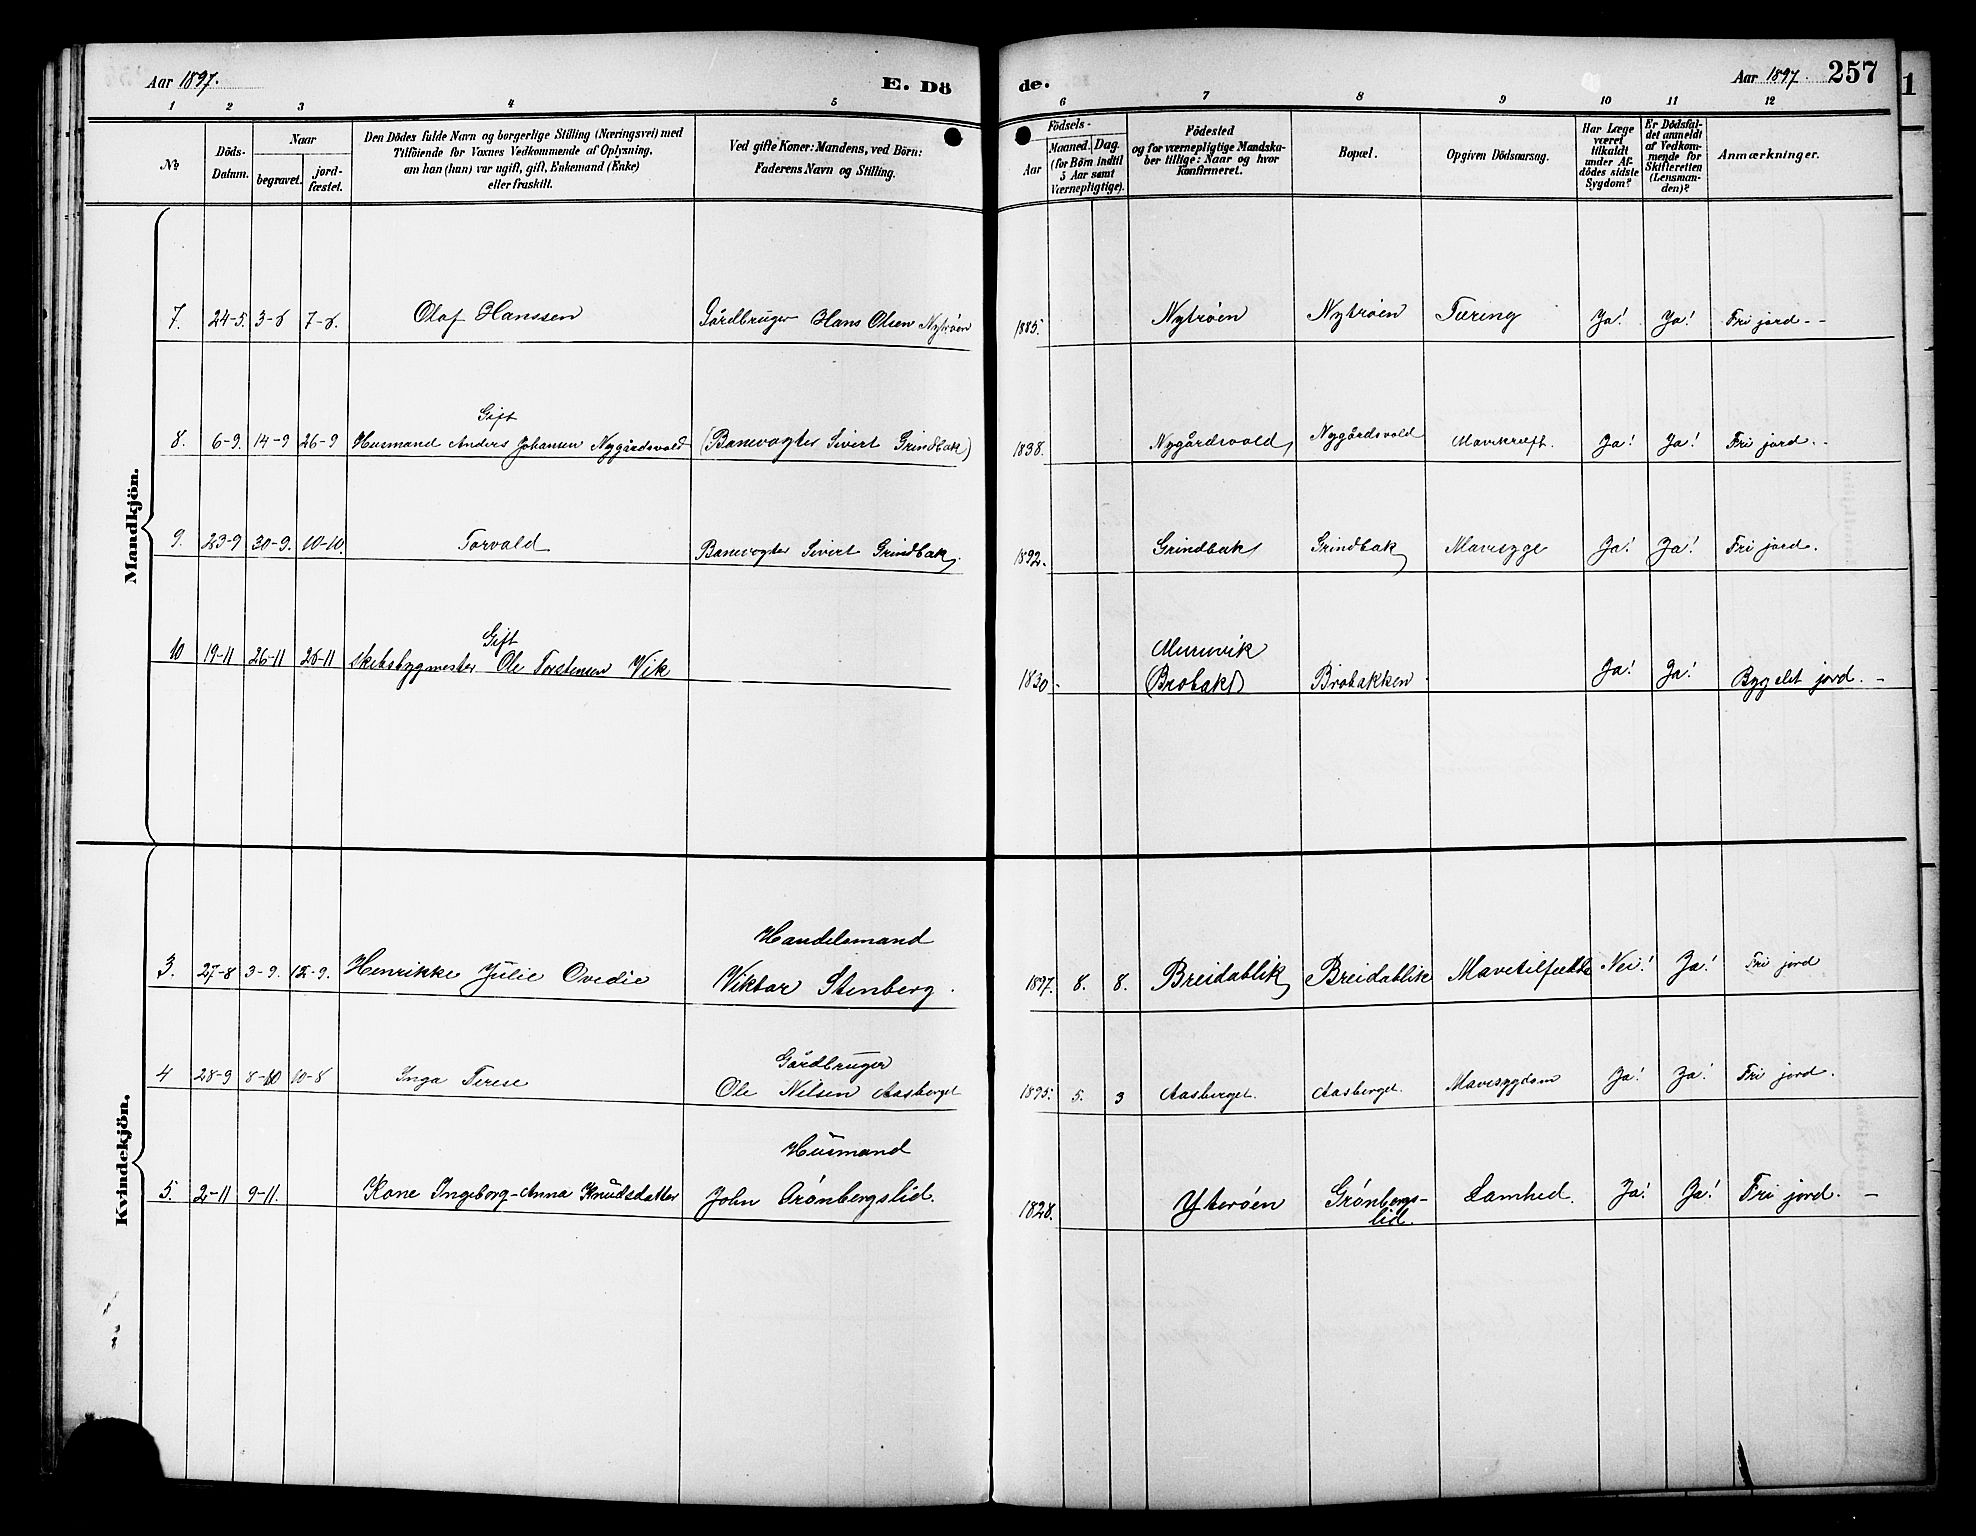 Aar 1897.
E. Dö
de.
Aar 1897.
257
1 2 3 4 5
6 7 8 9 10 11 12
No
Döds-
Datum.
Naar
begravet.
jord-
fæstet.
Den Dödes fulde Navn og borgerlige Stilling (Næringsvei) med
Tilföiende for Voxnes Vedkommende af Oplysning,
om han (hun) var ugift, gift, Enkemand (Enke)
eller fraskilt.
Ved gifte Koner: Mandens, ved Börn:
Faderens Navn og Stilling.
Födsels-
Aar
Maaned. Dag.
(for Börn indtil
5 Aar samt
Værnepligtige).
Födested
og for værnepligtige Mandska-
ber tillige: Naar og hvor
Konfirmeret.
Bopæl.
Opgiven Dödsaarsag.
Har Læge
været
tilkaldt
under Af-
dödes sidste
Sygdom?
Er Dödsfal-
det anmeldt
af Vedkom-
mende for
Skifteretten
(Lensman-
den)?
Anmærkninger.
Mandkjön.
7. 24-5. 3-6 7-6. Olaf Hanssen Gårdbruger Hans Olsen Nytrøen 1885. Nytrøen Nytrøen Tæring Ja! Ja! Fri jord. - -
Gift
8. 6-9. 14-9 26-9 Husmand Anders Johansen Nygårdsvold (Banevogter Sivert Grindbak) 1838. Nygårdsvold Nygårdsvold Mavekræft. Ja! Ja! Fri jord. - -
9. 23-9 30-9. 10-10. Torvald Banevogter Sivert Grindbak. 1892. Grindbak Grindbak Mavesyge Ja! Ja! Fri jord.
Gift
10 19-11 26-11 26-11 skibsbygmester Ole Torstensen Vik 1830 - Muruvik
(Brobak) Brobakken. Ja! Ja! Byg slet jord. -
Kvindekjön.
Handelsmand
3. 27-8 3-9. 12-9. Henrikke Julie Ovedie Viktor Stenberg. 1897. 8. 8. Breidablik Breidablik Mavetilfælde Nei! Ja! Fri jord
Gårdbruger
4 28-9 8-10 10-8 Inga Terese Ole Nilsen Aasberget 1895. 5. 3 Aasberget. Aasberget. Mavesygdom Ja! Ja! Fri jord.
Husmand
5. 2-11 9-11. Kone Ingeborg-Anna Knudsdatter John Grønbergslid. 1828. Ytterøen Grønbergs-
lid. Lamhed. Ja! Ja! Fri jord. -
1